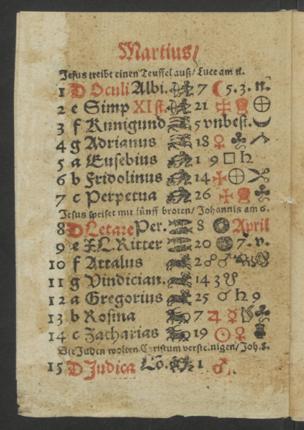 Martius/
Jesus treibt einen Teuffel auß/ Luce am 11.
1 D Oculi Albi. 7 ☾ 5. 3. n.
2 e Simp XI st. 21
3 f Kunigund 5 vnbest.
4 g Adrianus 18 ♀
5 a Eusebius 1 9 □ ♄
6 b Fridolinus 14
7 c Perpetua 26
Jesus speiset mit fünff broten/ Johannis am 6.
8 D Letare Per. 8 April
9 e Ritter 20 7. v.
10 f Attalus 2 ♂
11 g Vindician. 14 3 ☋
12 a Gregorius 25 ♂ ♄ 9
13 b Rosina 7 ♃ ☿
14 c Zacharias 19 ☉ ♀
Die Juden wolten Christum versteinigen/ Joh. 8.
15 D Judica Lo. 1 ♂